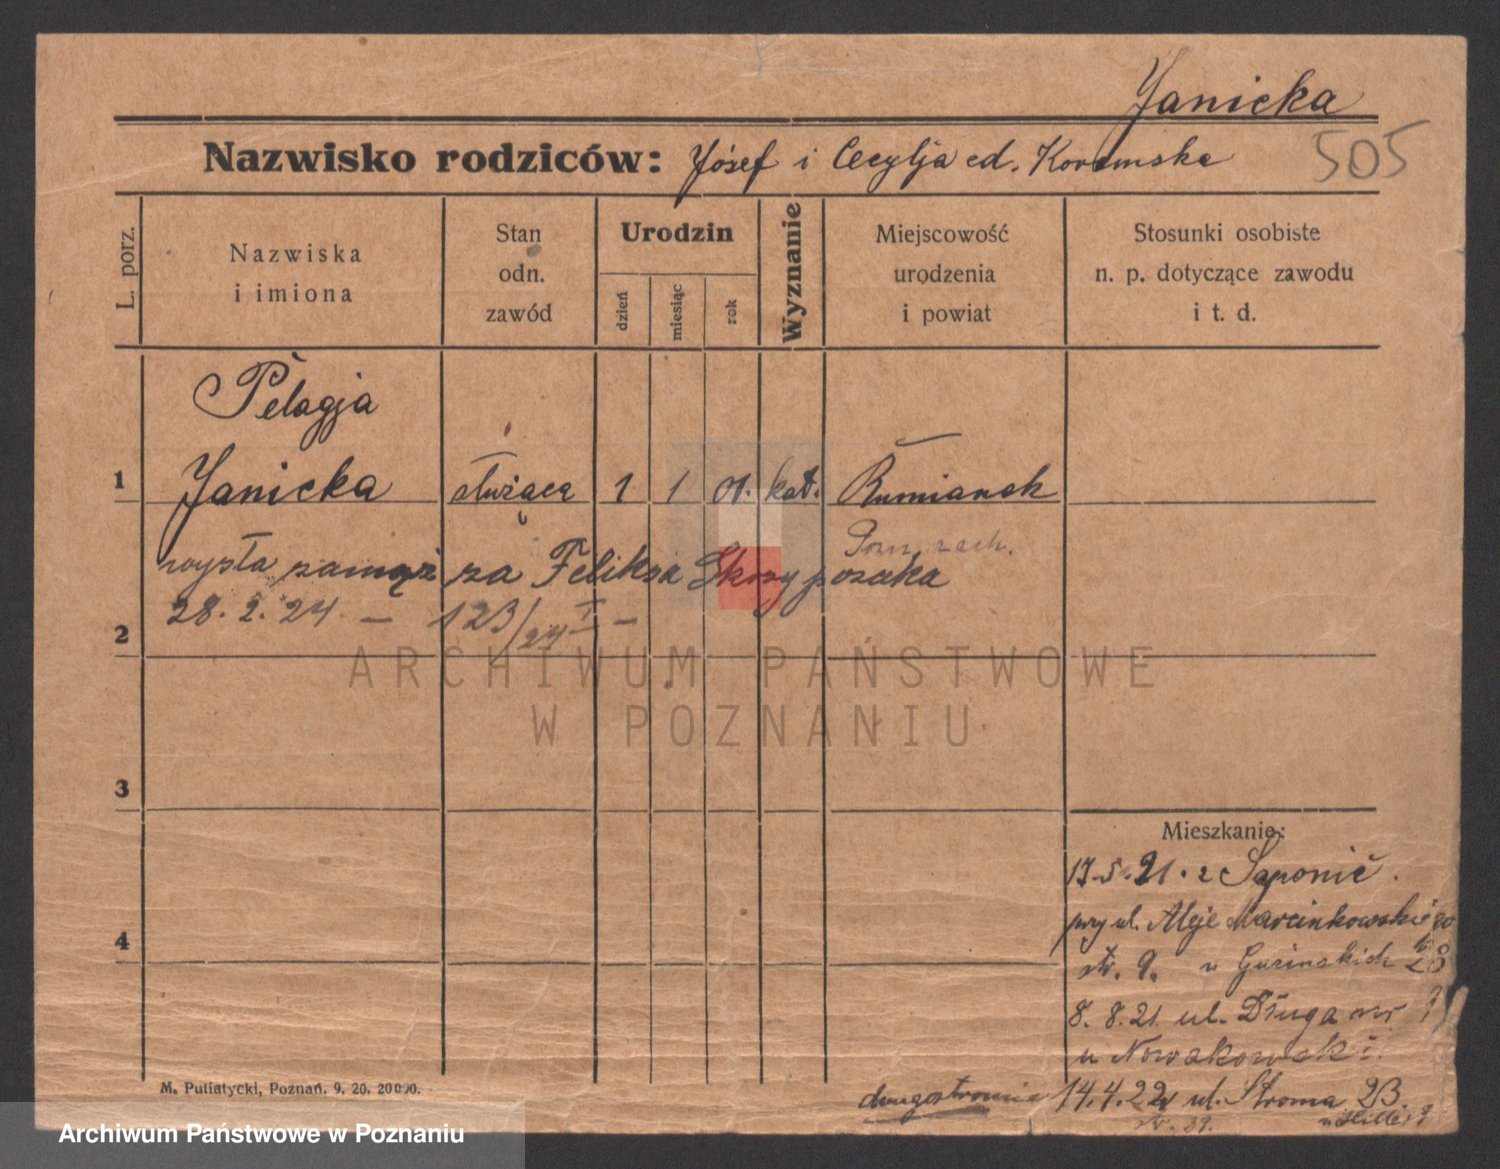 Janicka
Nazwisko rodziców: Józef i Cecylja cd.
505
L. porz.
Nazwiska
i imiona
Stan
odn.
zawód
Urodzin
dzień
miesiąc
rok
Wyznanie
Miejscowość
urodzenia
i powiat
Stosunki osobiste
n. p. dotyczące zawodu
i t. d.
Pelagja
1 Janicka służąca 1 1 01. kat. Rumianek
Pozn. zach.
wyszła zamąż za Feliksa Skrzypczaka
28. 2. 24. — 123/24 I —
2
ARCHIWUM PAŃSTWOWE
W POZNANIU
3
Mieszkanie:
17.5.21. z
4
przy ul. Aleje Marcinkowskiego
str. 9. u 28
8. 8. 21 ul. Długa nr
u Nowakowski
M. Putiatycki, Poznań. 9. 20. 20000.
druga strona 14.4.22 ul. Stroma 23.
Archiwum Państwowe w Poznaniu